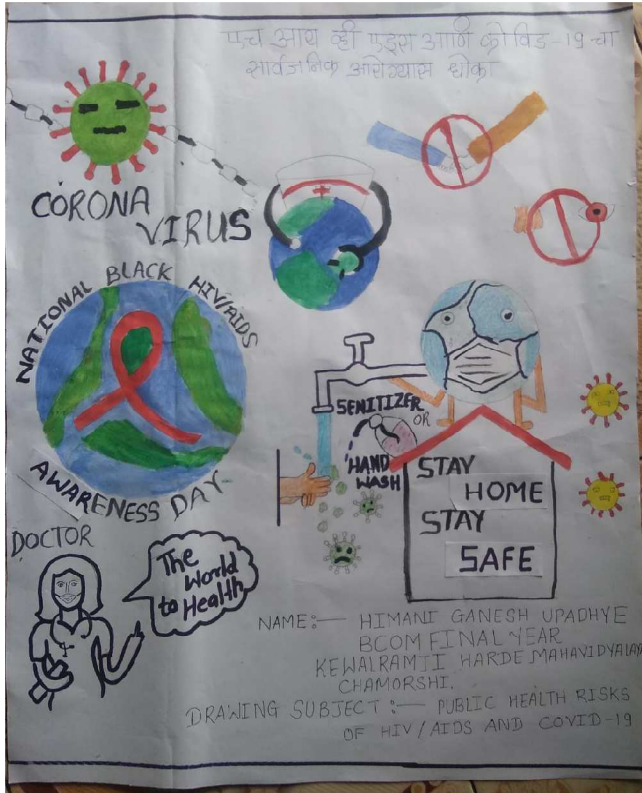 एच आय व्ही एड्स आणि कोविड-19 चा
सार्वजनिक आरोग्यास धोका
CORONA
VIRUS
NATIONAL BLACK HIV/AIDS
AWARENESS DAY
SENITIZER
OR
HAND
WASH
STAY
HOME
STAY
SAFE
DOCTOR
The
World
to Health
NAME:— HIMANI GANESH UPADHYE
BCOM FINAL YEAR
KEWALRAMJI HARDE MAHAVIDYALAYA
CHAMORSHI.
DRAWING SUBJECT:— PUBLIC HEALTH RISKS
OF HIV/AIDS AND COVID-19